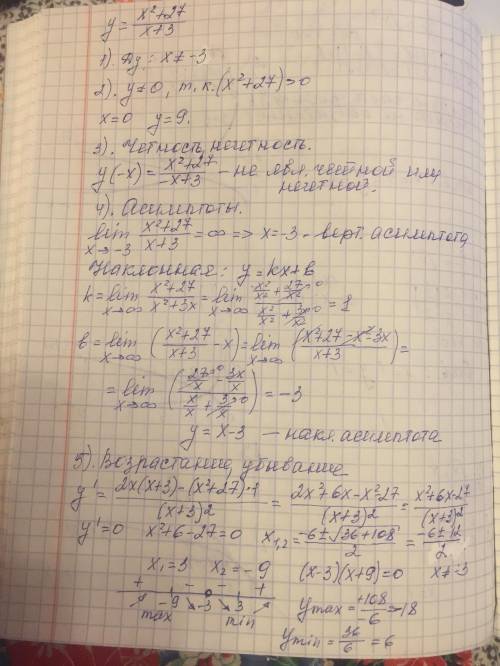 y = (x²+27)/(x+3)
1). Dy: x≠-3
2). y≠0, т.к. (x²+27)>0
x=0 y=9.
3). Четность, нечетность.
y(-x) = (x²+27)/(-x+3) - не явл. четной или
нечетной.
4). Асимптоты.
lim x→-3 (x²+27)/(x+3) = ∞ => x=-3 - верт. асимптота
Наклонная: y=kx+b
k = lim x→∞ (x²+27)/(x²+3x) = lim x→∞ (x²/x² + 27/x²→0)/(x²/x² + 3x/x²→0) = 1
b = lim x→∞ ((x²+27)/(x+3) - x) = lim x→∞ ((x²+27-x²-3x)/(x+3)) =
= lim x→∞ ((27/x→0 - 3x/x)/(x/x + 3/x→0)) = -3
y = x-3 - накл. асимптота
5). Возрастание, убывание
y' = (2x(x+3)-(x²+27)·1)/(x+3)² = (2x²+6x-x²-27)/(x+3)² = (x²+6x-27)/(x+3)²
y'=0 x²+6-27=0 x₁,₂ = (-6±√36+108)/2 = (-6±12)/2
x₁=3 x₂=-9 (x-3)(x+9)=0 x≠-3
+ - - +
-9 -3 3
max min
ymax = +108/-6 = -18
ymin = 36/6 = 6